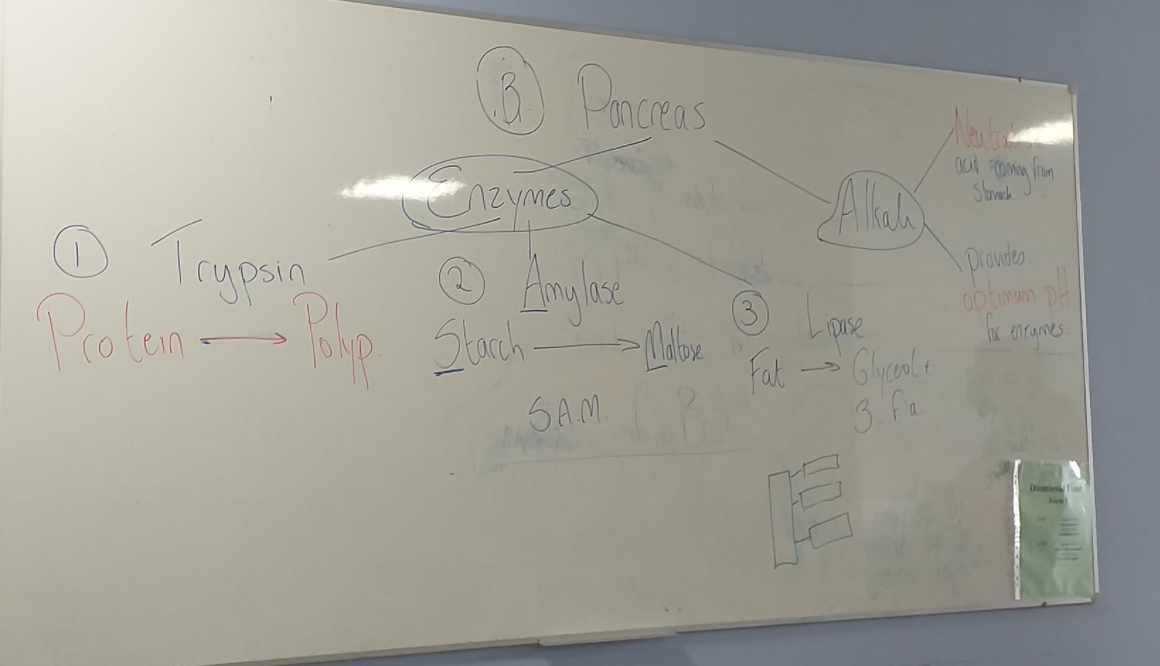 B Pancreas
Enzymes
Alkali
Neutralise
acid coming from
stomach
provides
optimum pH
for enzymes.
1 Trypsin
Protein → Polyp.
2 Amylase
Starch → Maltose
S.A.M.
3 Lipase
Fat → Glycerol +
3 fa.